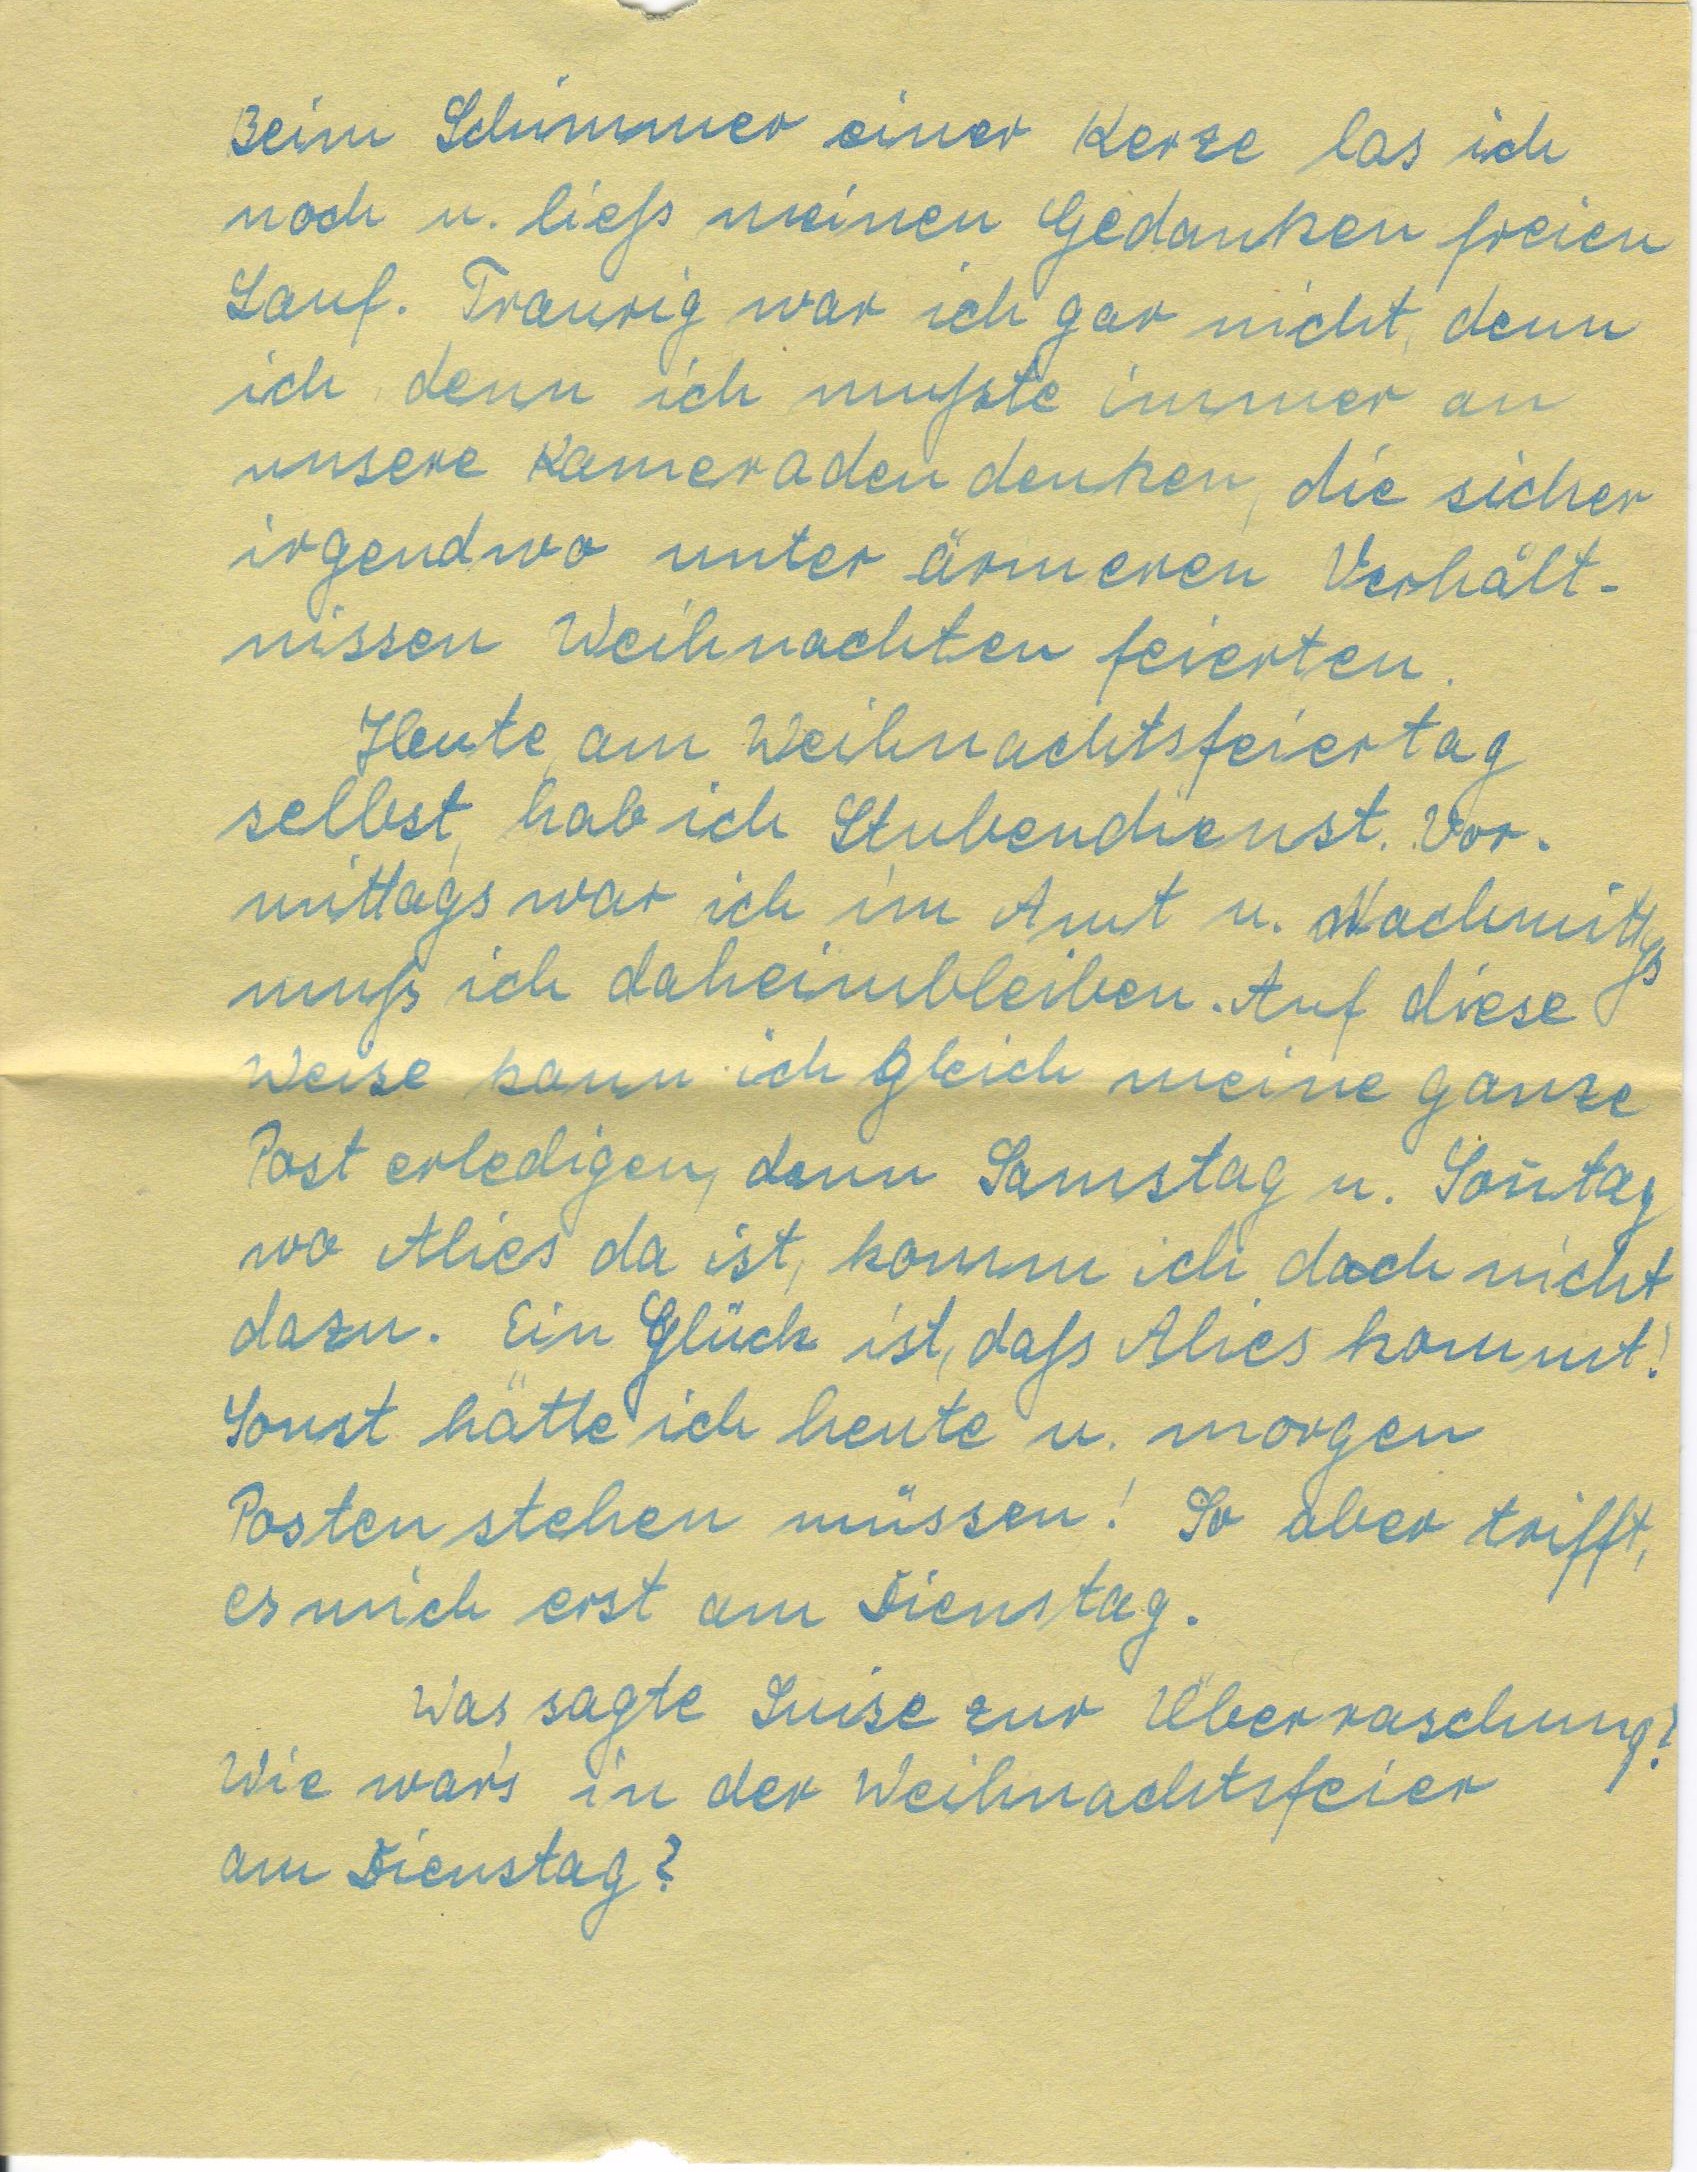 Beim Schimmer einer Kerze las ich
noch u. ließ meinen Gedanken freien
Lauf. Traurig war ich gar nicht, denn
ich, denn ich mußte immer an
unsere Kameraden denken, die sicher
irgendwo unter ärmeren Verhält-
nissen Weihnachten feierten.
Heute, am Weihnachtsfeiertag
selbst, hab ich Stubendienst. Vor-
mittags war ich im Amt u. Nachmittgs
muß ich daheimbleiben. Auf diese
Weise kann ich gleich meine ganze
Post erledigen, denn Samstag u. Son̄tag
wo Alies da ist, komm ich doch nicht
dazu. Ein Glück ist, daß Alies kommt!
Sonst hätte ich heute u. morgen
Posten stehen müssen! So aber trifft,
es mich erst am Dienstag.
Was sagte Luise zur Überraschung?
Wie war's in der Weihnachtsfeier
am Dienstag?